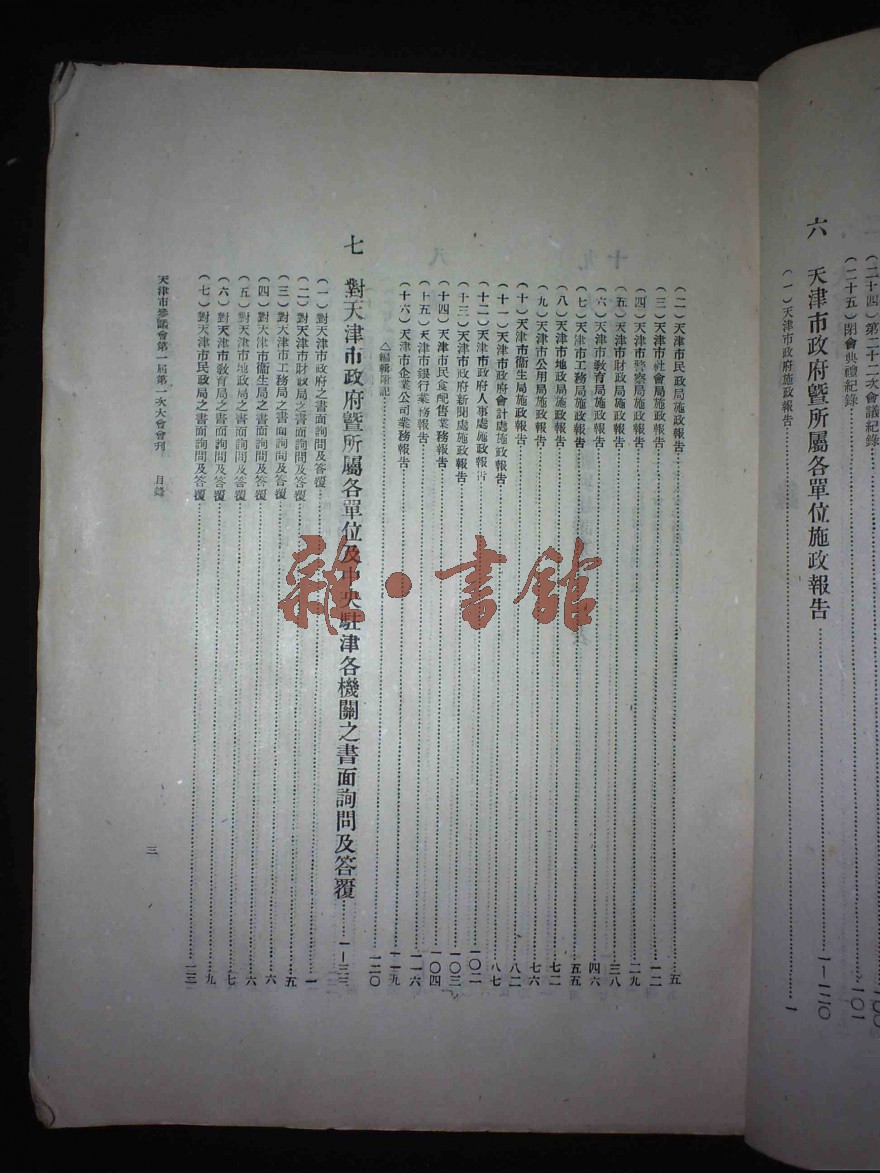 (二十四)第二十二次會議紀錄……一〇〇
(二十五)閉會典禮紀錄……一〇一
六 天津市政府暨所屬各單位施政報告……一—一二〇
(一)天津市政府施政報告……一
(二)天津市民政局施政報告……五
(三)天津市社會局施政報告……一二
(四)天津市警察局施政報告……二九
(五)天津市財政局施政報告……三八
(六)天津市教育局施政報告……四六
(七)天津市工務局施政報告……五五
(八)天津市地政局施政報告……七二
(九)天津市公用局施政報告……七六
(十)天津市衞生局施政報告……八二
(十一)天津市政府會計處施政報告……八七
(十二)天津市政府人事處施政報告……一〇二
(十三)天津市政府新聞處施政報告……一〇三
(十四)天津市民食配售業務報告……一〇四
(十五)天津市銀行業務報告……一一六
(十六)天津市企業公司業務報告……一一九
△編輯附記……一二〇
七 對天津市政府暨所屬各單位及中央駐津各機關之書面詢問及答覆……一—三三
(一)對天津市政府之書面詢問及答覆……一
(二)對天津市財政局之書面詢問及答覆……五
(三)對天津市工務局之書面詢問及答覆……六
(四)對天津市衞生局之書面詢問及答覆……六
(五)對天津市地政局之書面詢問及答覆……七
(六)對天津市教育局之書面詢問及答覆……九
(七)對天津市民政局之書面詢問及答覆……一三
天津市參議會第一屆第一次大會會刊 目錄
三
雜·書館